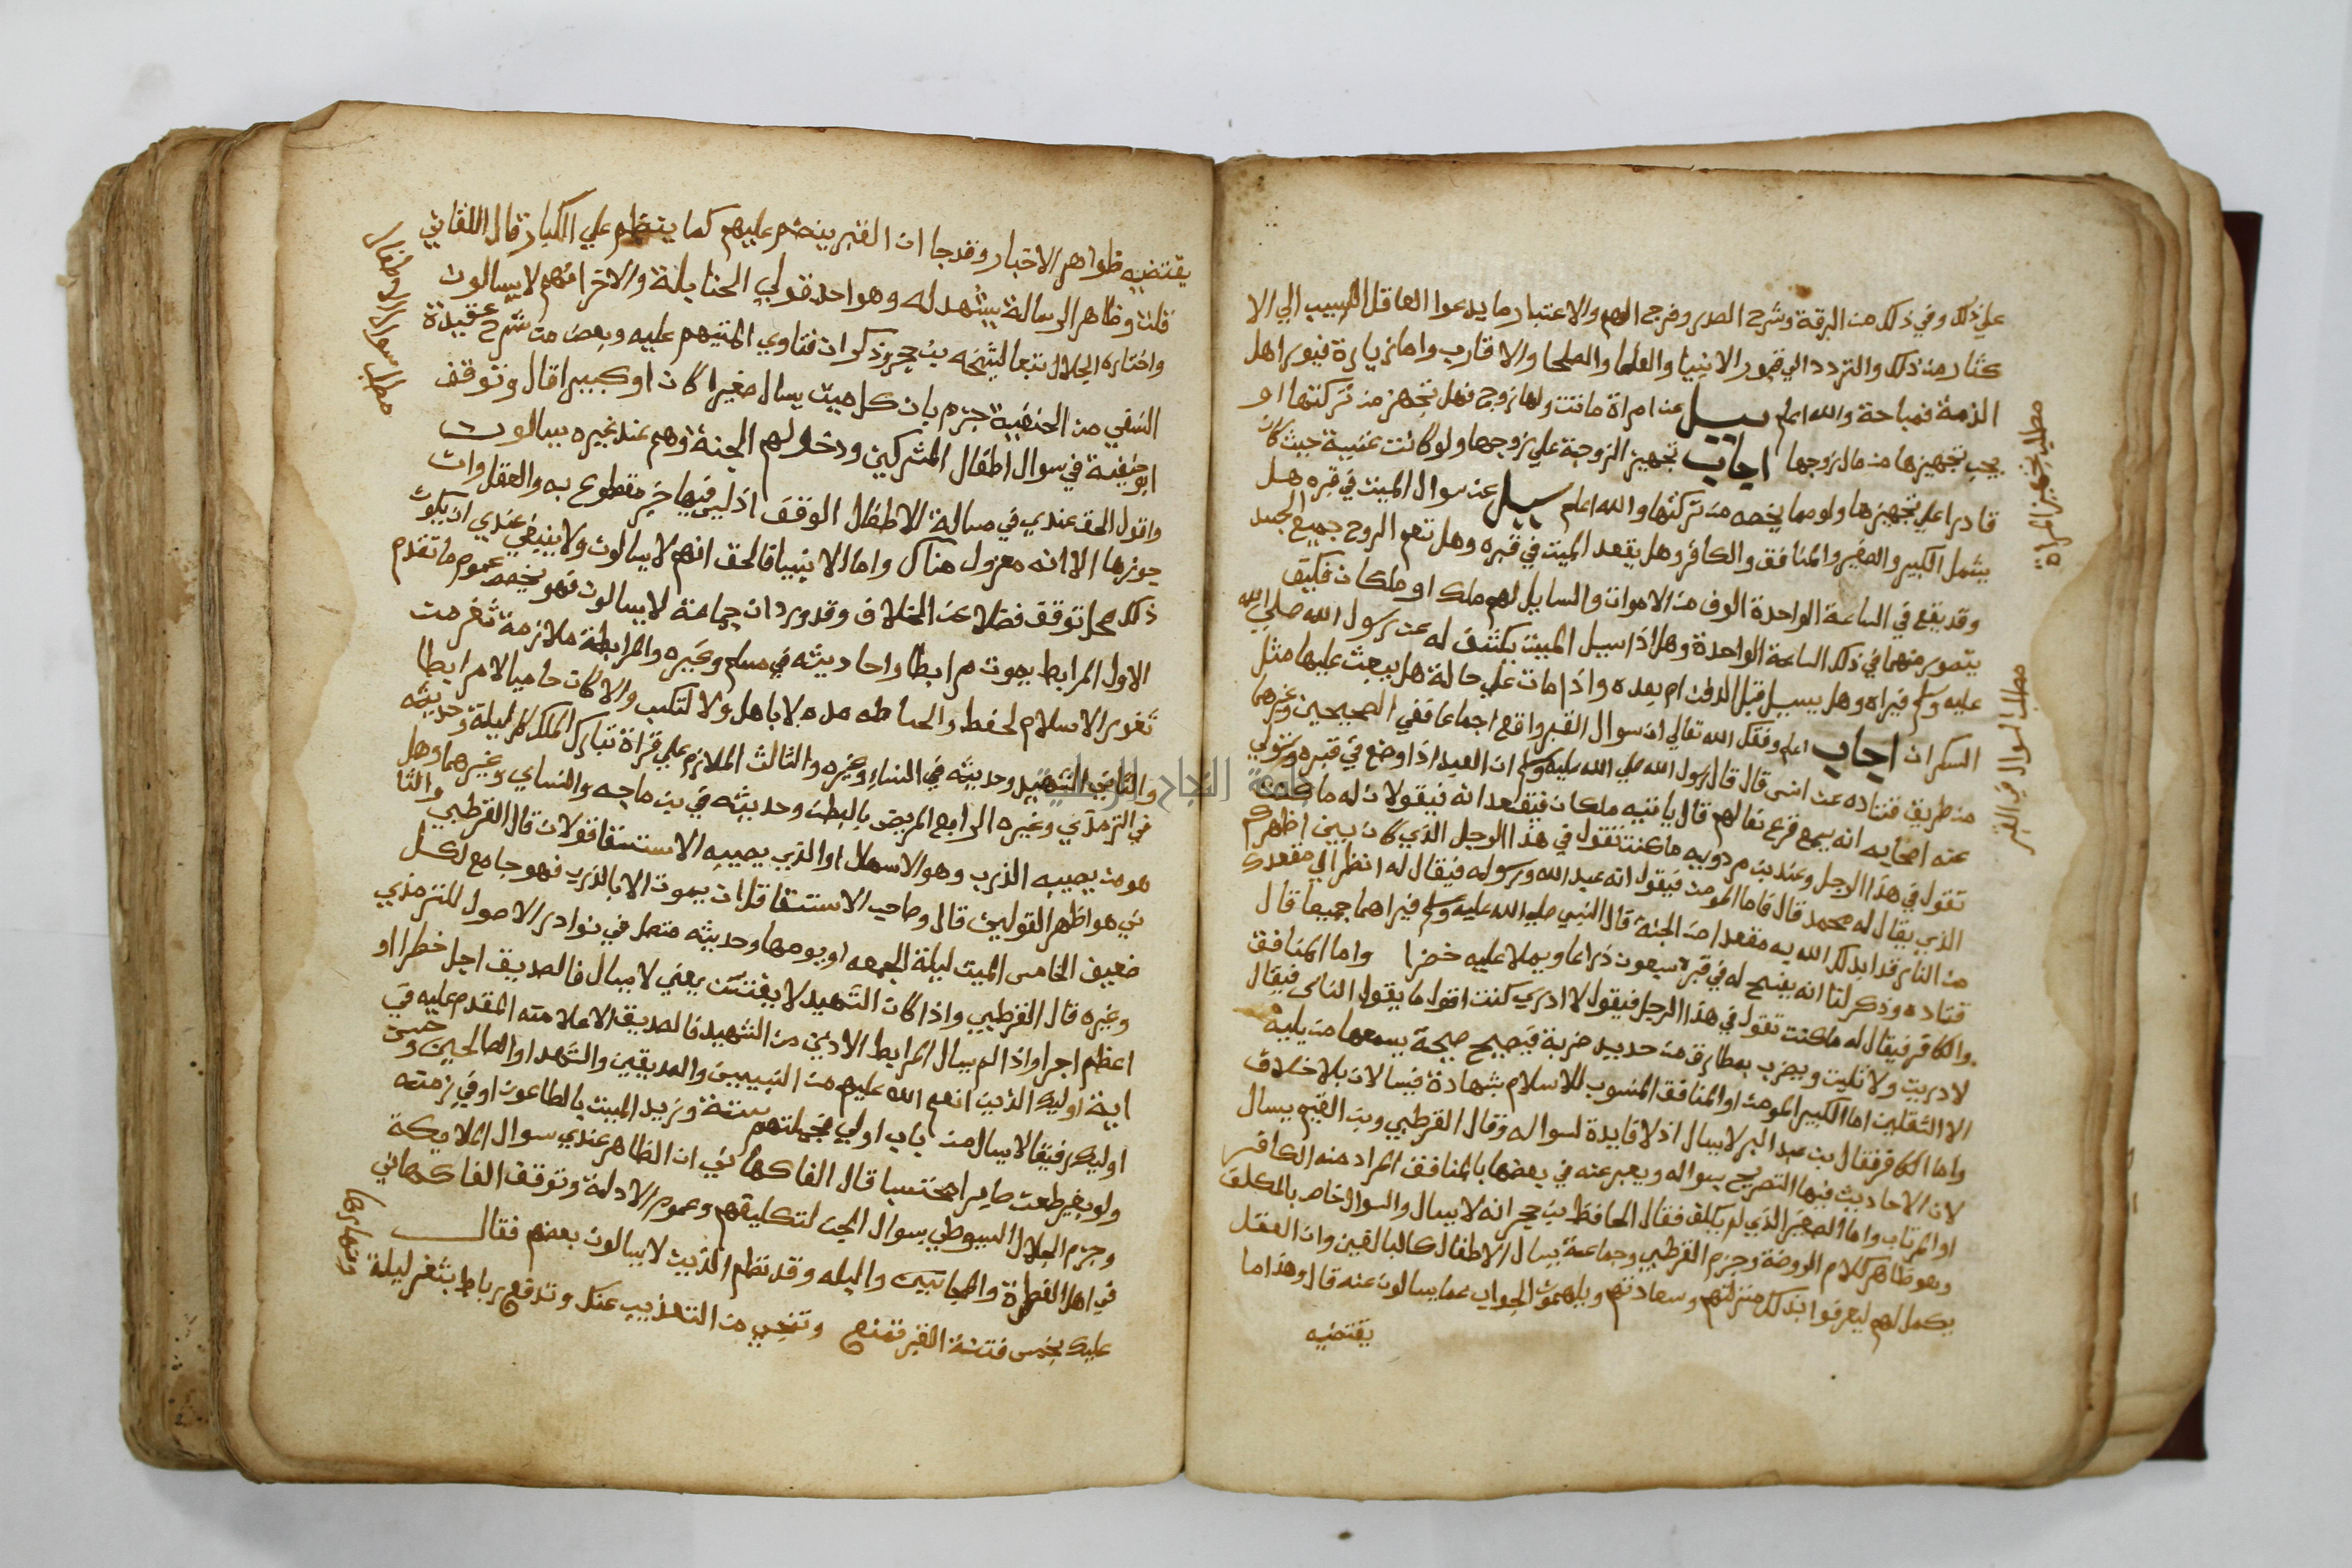 على ذلك وفي ذلك من الرقة وشرح الصدر وفرج الهم والاعتبار ما يدعوا العاقل اللبيب الي الا
كثار من ذلك والتردد الي قبور الانبيا والعلما والصلحا والاقارب واما زيارة قبور اهل
الذمة فمباحة والله اعلم سيل عن امراة ماتت ولها زوج فهل تجهز من تركتها او
يجب تجهيزها من مال زوجها اجاب تجهيز الزوجة علي زوجها ولو كانت غنيبة حيث كان
قادرا علي تجهيزها ولو مما يخصه من تركتها والله اعلم سيل عن سوال الميت في قبره هل
يشمل الكبير والصغير والمنافق والكافر وهل يقعد الميت في قبره وهل تعم الروح جميع الجسد
وقد يقع في الساعة الواحدة الوف من الاموات والسايل لهم ملك او ملكان فكيف
يتصور منهما في ذلك الساعة الواحدة وهل اذا سيل الميت يكشف له عن رسول الله صلي الله
عليه وسلم فيراه وهل يسيل قبل الدفن ام بعده واذا مات علي حالة هل يبعث عليها مثل
السكران اجاب اعلم وفقك الله تعالي ان سوال القبر واقع اجماعا ففي الصحيحين وغيرهما
من طريق قتاده عن انس قال قال رسول الله صلي الله عليه وسلم ان العبد اذا وضع في قبره وتولي
عنه اصحابه انه يسمع قرع نعالهم قال ياتيه ملكان فيقعدانه فيقولان له ما كنت
تقول في هذا الرجل وعند بن مردويه ما كنت تقول في هذا الرجل الذي كان بين اظهركم
الذي يقال له محمد قال فاما المومن فيقول انه عبد الله ورسوله فيقال له انظر الي مقعدك
من النار قد ابدلك الله به مقعدا من الجنة قال النبي صلي الله عليه وسلم فيراهما جميعا قال
قتاده وذكر لنا انه يفسح له في قبره سبعون ذراعا ويملا عليه خضرا واما المنافق
والكافر فيقال له ما كنت تقول في هذا الرجل فيقول لا ادري كنت اقول ما يقول الناس فيقال
لا دريت ولا تليت ويضرب بمطارق من حديد ضربة فيصيح صيحة يسمعها من يليه
الا الثقلين اما الكبير المومن او المنافق المنسوب للاسلام بشهادة فيسالان بلا خلاف
واما الكافر فقال بن عبد البر لا يسال اذ لا فايدة لسواله وقال القرطبي وبن القيم يسال
لان الاحاديث فيها التصريح بسواله ويعبر عنه في بعضها بالمنافق المراد منه الكافر
او المرتاب واما الصغير الذي لم يكلف فقال الحافظ بن حجر انه لا يسال والسوال خاص بالمكلف
وهو ظاهر كلام الروضة وجزم القرطبي وجماعة بسال الاطفال كالبالغين وان العقل
يكمل لهم ليعرفوا بذلك منزلتهم وسعادتهم ويلهمون الجواب عما يسالون عنه قال وهذا ما
يقتضيه
مطلب تجهيز المراة
مطلب السوال في القبر
يقتضيه ظواهر الاخبار وقد جا ان القبر ينضم عليهم كما ينضم علي الكبار قال اللقاني
قلت وظاهر الرسالة يشهد له وهو احد قولي الحنابلة والاخر انهم لا يسالون
واختاره الجلال تبعا لشيخه بن حجر وذكر ان فتاوي ائمتهم عليه وبعض من شرح عقيدة
النسفي من الحنفية جزم بان كل ميت يسال صغيرا كان او كبيرا قال وتوقف
ابو حنيفة في سوال اطفال المشركين ودخولهم الجنة وهم عند غيره يسالون
واقول الحق عندي في مسالة الاطفال الوقف اذ ليس فيها خبر مقطوع به والعقل وان
جوزها الا انه معزول هناك واما الانبيا فالحق انهم لا يسالون ولا ينبغي عندي ان يكون
ذلك محل توقف فضلا عن الخلاف وقد ورد ان جماعة لا يسالون فهو يخصص عموم ما تقدم
الاول المرابط يموت مرابطا واحاديثه في مسلم وغيره والمرابطة ملازمة ثغر من
ثغور الاسلام لحفظه والحاطه مده لا باهل ولا لتكسب والا كان حاميا لا مرابطا
والثاني الشهيد وحديثه في النساء وغيره والثالث الملازم علي قراة تبارك الملك كل ليلة وحديثه
في الترمذي وغيره الرابع المريض بالبطن وحديثه في بن ماجه والنساي وغيرهما وهل
هو من يصيبه الذرب وهو الاسهال او الذي يصيبه الاستسقا قولان قال القرطبي والثا
ني هو اظهر القولين قال وصاحب الاستسقا قل ان يموت الا بالذرب فهو جامع لكل
ضعيف الخامس الميت ليلة الجمعه او يومها وحديثه متصل في نوادر الاصول للترمذي
وغيره قال القرطبي واذا كان الشهيد لا يفتتن يعني لا يسال فالصديق اجل خطرا او
اعظم اجرا واذا لم يسال المرابط الادني من الشهيد فالصديق الاعلا منه المقدم عليه في
اية اوليك الذين انعم الله عليهم من النبيين والصديقين والشهدا والصالحين وحسن
اوليك رفيقا لا يسال من باب اولي فجملتهم ستة ونزيد الميت بالطاعون او في زمنه
ولو بغير طعن صابرا محتسبا قال الفاكهاني ان الظاهر عندي سوال الملايكة
وجزم الجلال السيوطي بسوال الجن لتكليفهم وعموم الادلة وتوقف الفاكهاني
في اهل الفطرة والمجانين والبله وقد نظم الذين لا يسالون بعضهم فقال
عليك بخمس فتنة القبر تمنع وتنجي من التعذيب عنك وتدفع رباط بثغر ليلة
ونهارها
مطلب سوال الاطفال
جامعة النجاح الوطنية